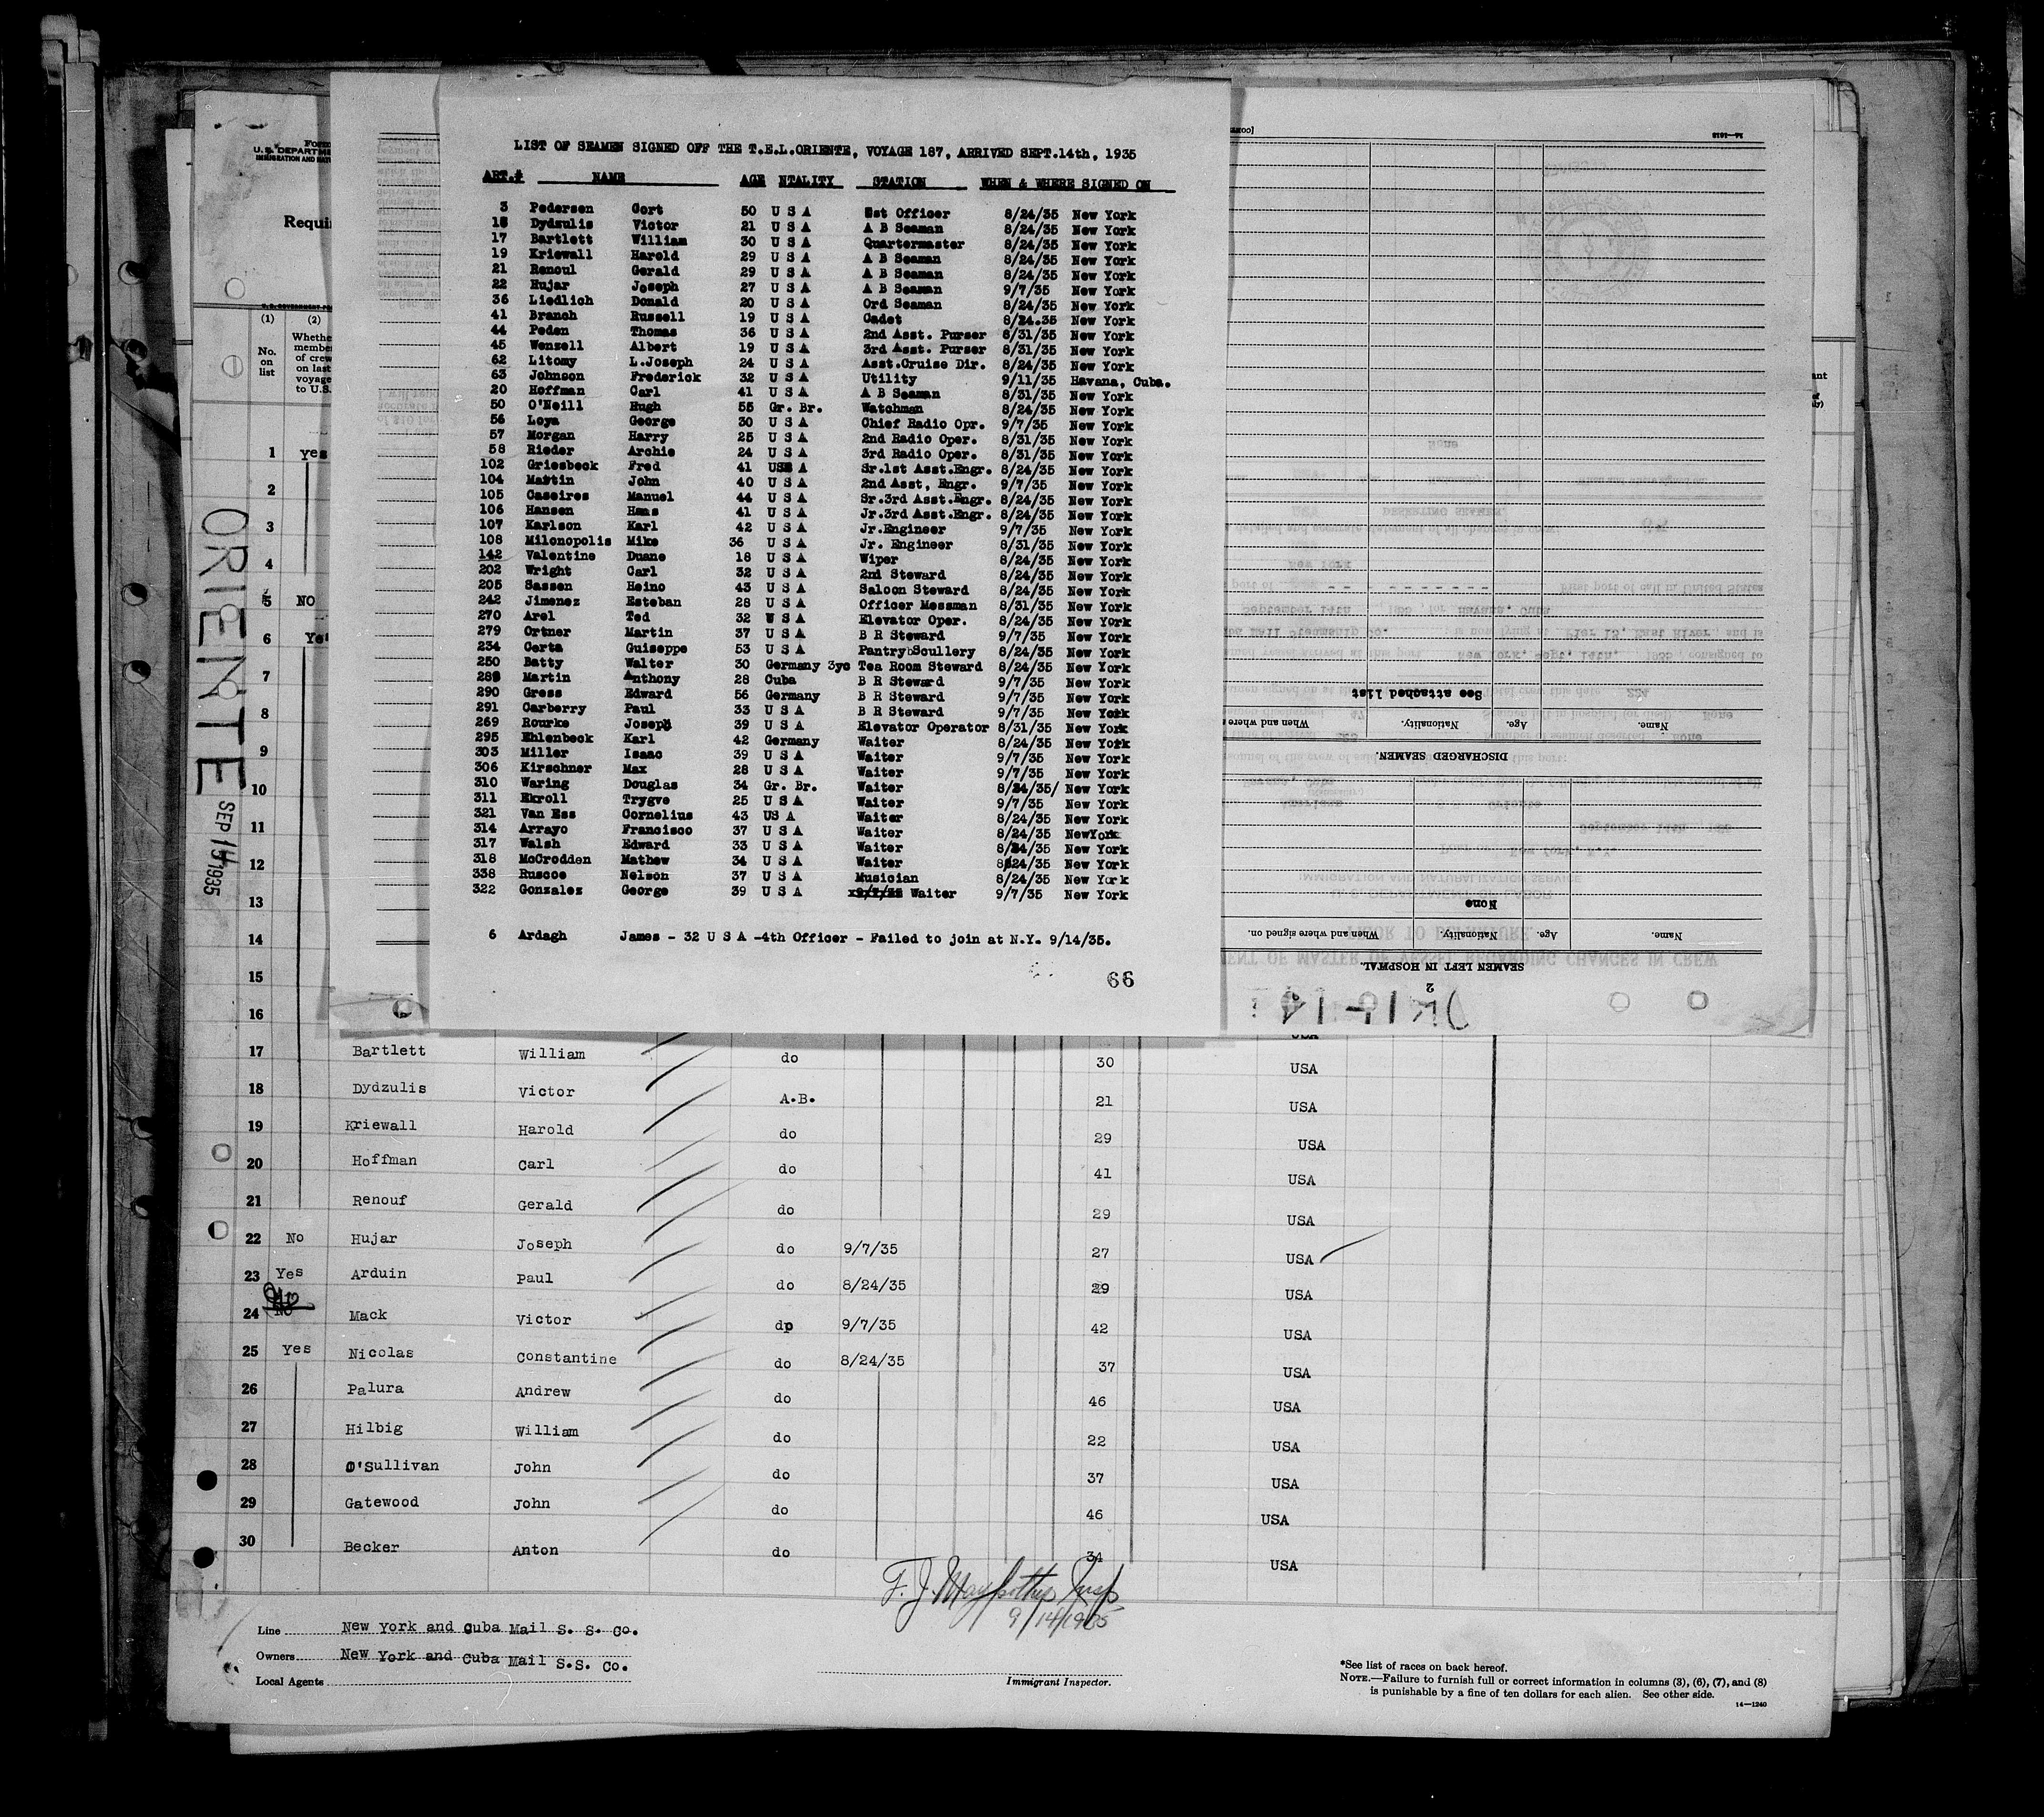 LIST OF SEAMEN SIGNED OFF THE T.E.L.ORIENTE, VOYAGE 187, ARRIVED SEPT.14th, 1935
ART.# NAME AGE NTALITY STATION WHEN & WHERE SIGNED ON
3 Pedersen Cort 50 U S A 1st Officer 8/24/35 New York
18 Dydzulis Victor 21 U S A A B Seaman 8/24/35 New York
17 Bartlett William 30 U S A Quartermaster 8/24/35 New York
19 Kriewall Harold 29 U S A A B Seaman 8/24/35 New York
21 Renoul Gerald 29 U S A A B Seaman 8/24/35 New York
22 Hujar Joseph 27 U S A A B Seaman 9/7/35 New York
36 Liedlich Donald 20 U S A Ord Seaman 8/24/35 New York
41 Branch Russell 19 U S A Cadet 8/24.35 New York
44 Peden Thomas 36 U S A 2nd Asst. Purser 8/31/35 New York
45 Wenzell Albert 19 U S A 3rd Asst. Purser 8/31/35 New York
62 Litomy L.Joseph 24 U S A Asst.Cruise Dir. 8/24/35 New York
63 Johnson Frederick 32 U S A Utility 9/11/35 Havana, Cuba.
20 Hoffman Carl 41 U S A A B Seaman 8/31/35 New York
50 O'Neill Hugh 55 Gr. Br. Watchman 8/24/35 New York
56 Loya George 30 U S A Chief Radio Opr. 9/7/35 New York
57 Morgan Harry 25 U S A 2nd Radio Oper. 8/31/35 New York
58 Rieder Archie 24 U S A 3rd Radio Oper. 8/31/35 New York
102 Griesbeck Fred 41 US A Sr.1st Asst.Engr. 8/24/35 New York
104 Martin John 40 U S A 2nd Asst, Engr. 9/7/35 New York
105 Caseires Manuel 44 U S A Sr.3rd Asst.Engr. 8/24/35 New York
106 Hansen Hans 41 U S A Jr.3rd Asst.Engr. 8/24/35 New York
107 Karlson Karl 42 U S A Jr.Engineer 9/7/35 New York
108 Milonopolis Mike 36 U S A Jr. Engineer 8/31/35 New York
142 Valentine Duane 18 U S A Wiper 8/24/35 New York
202 Wright Carl 32 U S A 2nd Steward 8/24/35 New York
205 Sassen Heino 43 U S A Saloon Steward 8/24/35 New York
242 Jimenez Esteban 28 U S A Officer Messman 8/31/35 New York
270 Arel Ted 32 U S A Elevator Oper. 8/24/35 New York
279 Ortner Martin 37 U S A B R Steward 9/7/35 New York
234 Certa Guiseppe 53 U S A Pantry Scullery 8/24/35 New York
250 Batty Walter 30 Germany 3yc Tea Room Steward 8/24/35 New York
288 Martin Anthony 28 Cuba B R Steward 9/7/35 New York
290 Gress Edward 56 Germany B R Steward 9/7/35 New York
291 Carberry Paul 33 U S A B R Steward 9/7/35 New York
269 Rourke Joseph 39 U S A Elevator Operator 8/31/35 New York
295 Ehlenbeck Karl 42 Germany Waiter 8/24/35 New York
303 Miller Isaac 39 U S A Waiter 9/7/35 New York
306 Kirschner Max 28 U S A Waiter 9/7/35 New York
310 Waring Douglas 34 Gr. Br. Waiter 8/24/35/ New York
311 Ekroll Trygve 25 U S A Waiter 9/7/35 New York
321 Van Ess Cornelius 43 US A Waiter 8/24/35 New York
314 Arrayo Francisco 37 U S A Waiter 8/24/35 NewYork
317 Walsh Edward 33 U S A Waiter 8/24/35 New York
318 McCrodden Mathew 34 U S A Waiter 8/24/35 New York
338 Ruscoe Nelson 37 U S A Musician 8/24/35 New York
322 Gonzalez George 39 U S A Waiter 9/7/35 New York
6 Ardagh James - 32 U S A -4th Officer - Failed to join at N.Y. 9/14/35.
66
U.S. DEPARTM
Requi
(1) (2)
No. on list
Whethe
membe
of crew
on last
voyage
to U.S.
ORIENTE
SEP 14 1935
1 yes
2
3
4
5 NO
6 Yes
7
8
9
10
11
12
13
14
15
16
17 Bartlett William do 30 USA
18 Dydzulis Victor A.B. 21 USA
19 Kriewall Harold do 29 USA
20 Hoffman Carl do 41 USA
21 Renouf Gerald do 29 USA
22 No Hujar Joseph do 9/7/35 27 USA
23 Yes Arduin Paul do 8/24/35 29 USA
24 No Mack Victor dp 9/7/35 42 USA
25 Yes Nicolas Constantine do 8/24/35 37 USA
26 Palura Andrew do 46 USA
27 Hilbig William do 22 USA
28 O'Sullivan John do 37 USA
29 Gatewood John do 46 USA
30 Becker Anton do 34 USA
9/14/1935
Line New York and Cuba Mail S. S. Co.
Owners New York and Cuba Mail S.S. Co.
Local Agents
Immigrant Inspector.
*See list of races on back hereof.
NOTE.—Failure to furnish full or correct information in columns (3), (6), (7), and (8)
is punishable by a fine of ten dollars for each alien. See other side.
14—1240
SEAMEN LEFT IN HOSPITAL.
Name. Age. Nationality. When and where signed on.
None
DISCHARGED SEAMEN.
Name. Age. Nationality. When and where s
See attached list